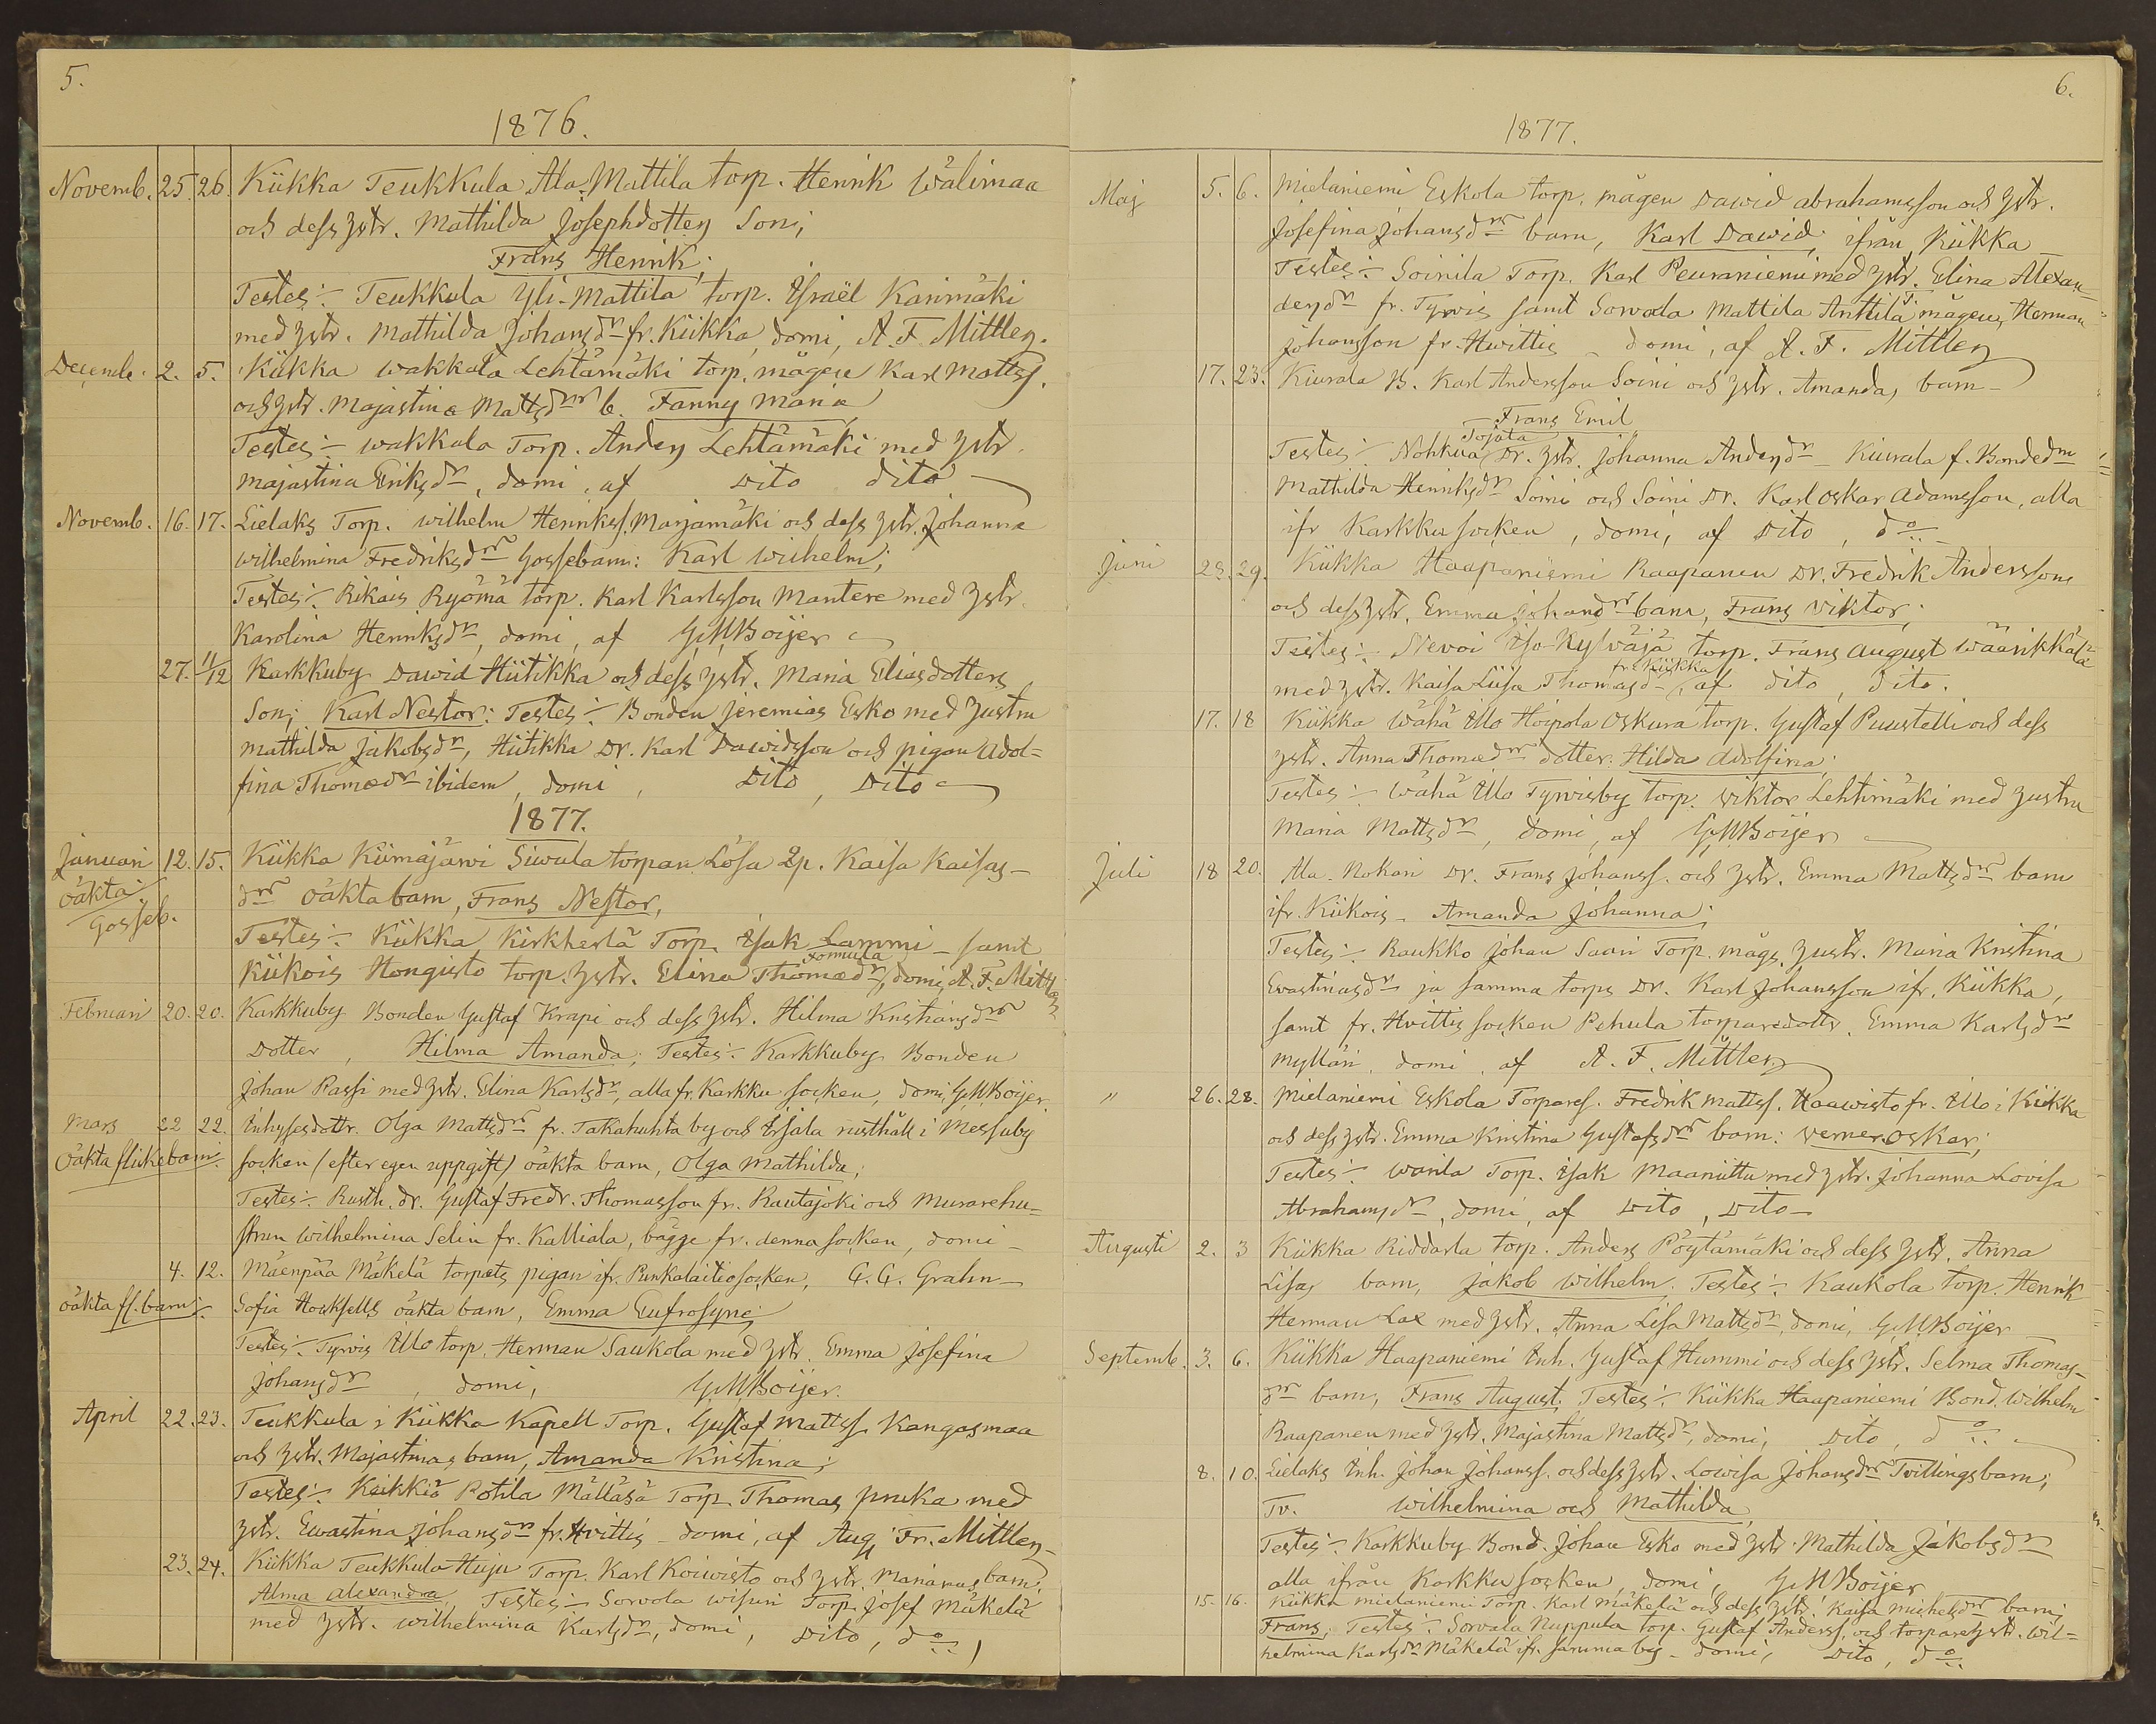 5.
1876.
Novemb. 25. 26. Kiikka Teukkula Ala-Mattila torp. Henrik Wälimaa
och dess hstr. Mathilda Josephdotters Son;
Frans Henrik;
Testes:- Teukkula Yli-Mattila torp. Israël Karimäki
med hstr. Mathilda Johansdr fr. Kiikka, domi, A. F. Mittler.
Decemb. 2. 5. Kiikka Wakkala Lehtämäki torp. mågen Karl Mattss.
och hstr. Majastina Mattsdrs b. Fanny Maria
Testes:- Wakkala Torp. Anders Lehtämäki med hstr.
Majastina Eriksdr, domi, af Dito Dito
Novemb. 16. 17. Lielaks Torp. Wilhelm Henrikss. Marjamäki och dess hstr. Johanna
Wilhelmina Fredriksdrs Gossebarn: Karl Wilhelm;
Testes:- Rikais Ryömä torp. Karl Karlsson Mantere med hstr.
Karolina Henriksdr, domi, af G M Boijer
27. 11/12 Karkkuby Dawid Hiitikka och dess hstr. Maria Eliasdotters
Son; Karl Nestor: Testes:- Bonden Jeremias Esko med hustru
Mathilda Jakobsdr, Hiitikka Dr. Karl Dawidsson och pigan Adol=
fina Thomædr ibidem, domi, Dito, Dito
1877.
Januari 12. 15. Kiikka Kiimajärwi Siwula torpan Lösa Qp. Kaisa Kaisas-
oäkta
Gosseb.
drs oäkta barn, Frans Nestor,
Testes:- Kiikka Kirkherlä Torp. Isak Lammi - samt
Tomula
Kiikois Hongisto torp. hstr. Elina Thomædr, domi, A. F. Mittler
Februari 20. 20. Karkkuby Bonden Gustaf Krapi och dess hstr. Hilma Kristiansdrs
Dotter, Hilma Amanda; Testes:- Karkkuby Bonden
Johan Passi med hstr. Elina Karlsdr, alla fr. Karkku socken, domi, G M Boijer.
Mars 22 22. Inhysesdottr. Olga Mattsdrs fr. Takahuhta by och Erjala rusthåll i Messuby
Oäkta flickebarn:
socken (efter egen uppgift) oäkta barn, Olga Mathilda;
Testes:- Rusth. dr. Gustaf Fredr. Thomasson fr. Rautajoki och Murarehu=
strun Wilhelmina Selin fr. Kalliala, bägge fr. denna socken, domi -
4. 12. Mäenpää Mäkelä torpets pigan ifr. Punkalaitio socken, G. G. Grahn -
oäkta fl. barn:
Sofia Hocksells oäkta barn, Emma Eufrosyne;
Testes:- Tyrvis Ullo torp. Herman Saukola med hstr. Emma Josefina
Johansdr, domi, G M Boijer.
April 22. 23. Teukkula i Kiikka Kapell Torp. Gustaf Mattss. Kangasmaa
och hstr. Majastinas barn, Amanda Kristina;
Testes:- Keikkiö Potila Mälläsä Torp. Thomas Juuka med
hstr. Ewastina Johansdr fr. Hvittis - domi, af Aug. Fr. Mittler -
23. 24. Kiikka Teukkula Huju Torp. Karl Koiwisto och hstr. Marianas barn:
Alma Alexandra, Testes:- Sorvola Wisuri Torp. Josef Mäkelä
med hstr. Wilhelmina Karlsdr, domi, Dito, do
6.
1877.
Maj 5. 6. Mielaniemi Eskola torp. mågen Dawid Abrahamsson och hstr.
Josefina Johansdrs barn, Karl Dawid, ifrån Kiikka
Testes:- Soinila Torp. Karl Peuraniemi med hstr. Elina Alexan=
dersdr fr. Tyrvis samt Sorvola Mattila Anttila T. mågen, Herman
Johansson fr. Hvittis - domi, af A. F. Mittler
17. 23. Kiurala B. Karl Andersson Soini och hstr. Amandas barn -
Frans Emil
Tojata
Testes:- Nohkua Dr. hstr. Johanna Andersdr - Kiurala f. Bondedr
Mathilda Henriksdr Soini och Soini Dr. Karl Oskar Adamsson, alla
ifr Karkku socken, domi, af Dito, do
Juni 28. 29. Kiikka Haapaniemi Raapanen Dr. Fredrik Anderssons
och dess hstr. Emma Johansdrs barn, Frans Viktor;
Testes:- Nevoi Iso-Kylväjä torp. Frans August Wäärikkälä
fr. Kiikka
med hstr. Kaisa Liisa Thomasdr, af dito, dito.
17. 18 Kiikka Wähä Ulo Hoipola Oskura torp. Gustaf Puustelli och dess
hstr. Anna Thomædrs dotter. Hilda Adolfina;
Testes:- Wähä Ullo Tyrvisby torp. Wiktor Lehtimäki med hustru
Maria Mattsdr, domi, af G M Boijer
Juli 18 20. Ala-Nokari Dr. Frans Johanss. och hstr. Emma Mattsdrs barn
ifr. Kiikois - Amanda Johanna;
Testes:- Raukko Johan Saari Torp. mågs hustr. Maria Kristina
Ewastinasdr ja samma torps Dr. Karl Johansson ifr. Kiikka,
samt fr. Hvittis socken Pehula torparedottr. Emma Karlsdr
Mylläri, domi, af A. F. Mittler
" 26. 28. Mielaniemi Eskola Torpares. Fredrik Mattss. Haawisto fr. Ullo i Kiikka
och dess hstr. Emma Kristina Gustafsdrs barn: Verner Oskar;
Testes:- Warila Torp. Isak Maanittu med hstr. Johanna Lovisa
Abrahamsdr, domi, af Dito, Dito -
Augusti 2. 3 Kiikka Riddarla torp. Anders Pöytämäki och dess hstr. Anna
Lisas barn, Jakob Wilhelm. Testes:- Kaukola torp. Henrik
Herman Lax med hstr. Anna Lisa Mattsdr, domi, G M Boijer
Septemb. 3. 6. Kiikka Haapaniemi Inh. Gustaf Hummi och dess hstr. Selma Thomas-
drs barn, Frans August, Testes:- Kiikka Haapaniemi Bond. Wilhelm
Raapanen med hstr. Majastina Mattsdr, domi, Dito, do
8. 10. Lielaks Inh. Johan Johanss. och dess hstr. Lowisa Johansdrs Tvillingsbarn;
Tv. Wilhelmina och Mathilda
Testes:- Karkkuby Bond. Johan Esko med hstr. Mathilda Jakobsdr
alla ifrån Karkku socken, domi, G M Boijer
15. 16. Kiikka Mielaniemi Torp. Karl Mäkelä och dess hstr. Kaisa Michelsdrs barn;
Frans; Testes:- Sorvala Nuppula torp. Gustaf Anderss. och torparehstr. Wil=
helmina Karlsdr Mäkelä ifr. samma by - domi, Dito, do